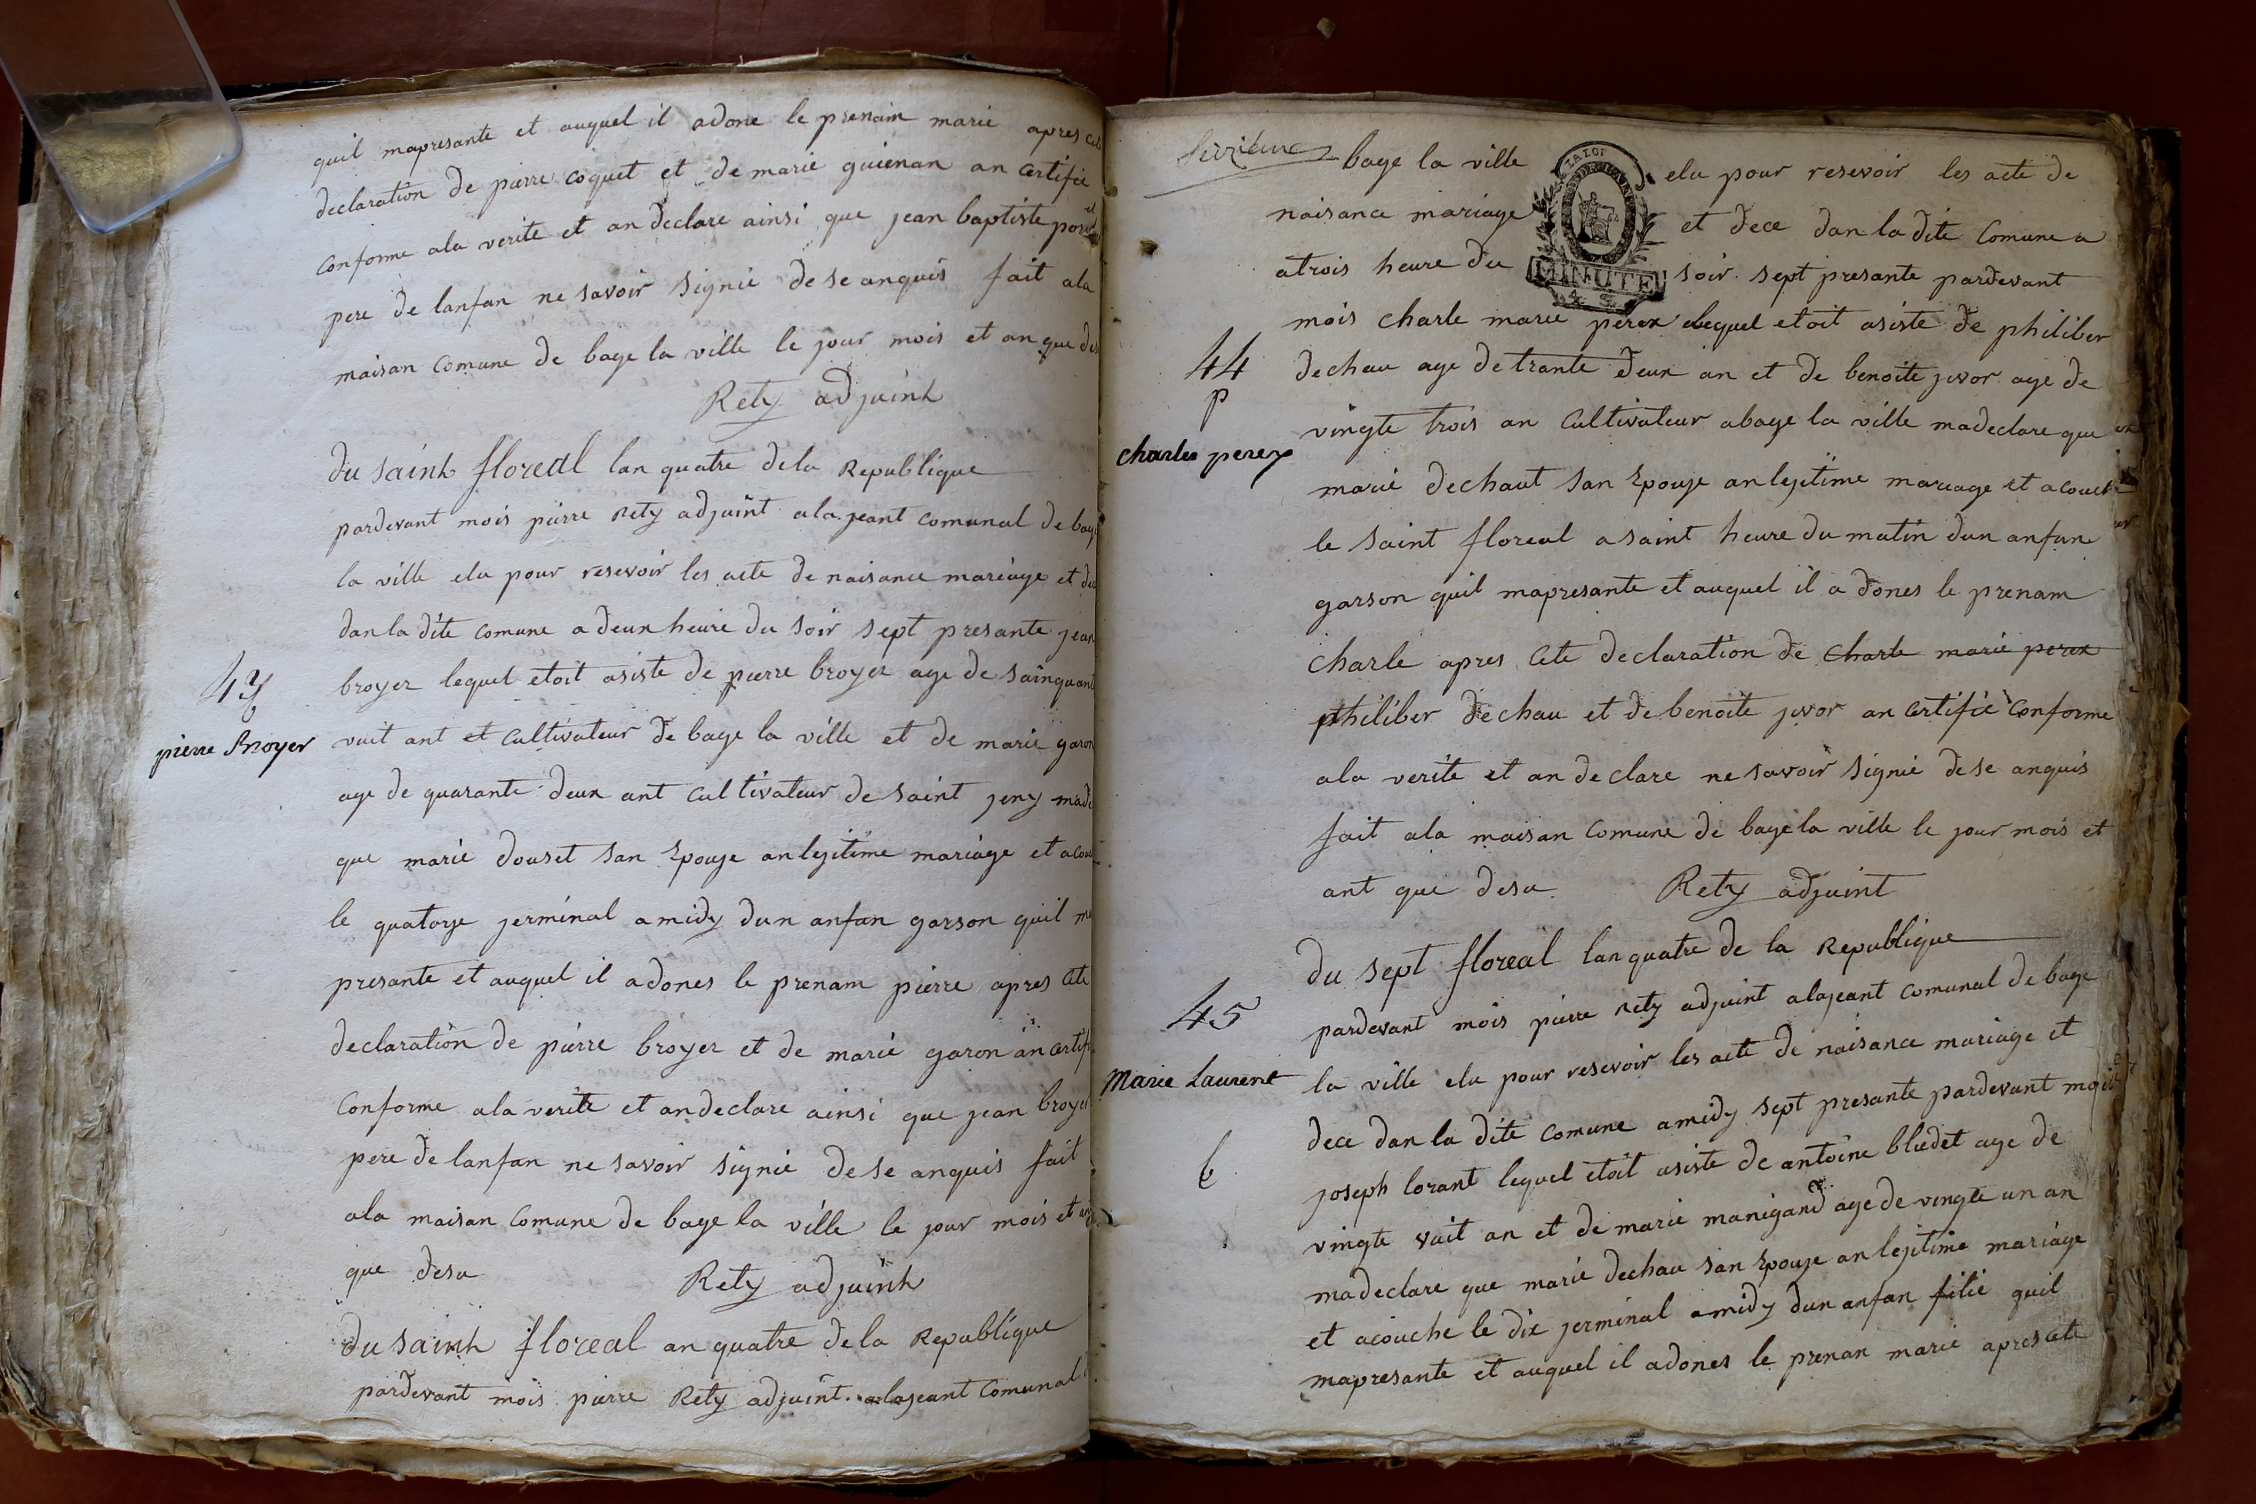 quil mapresante et auquel il adone le prenom marie apres cete
declaration de pierre coquet et de marie guienan an certifié
conforme ala verite et an declare ainsi que jean baptiste
pere de lanfan ne savoir signié dese anquis fait ala
maisan comune de bage la ville le jour mois et an que de
Rety adjuint
du saint floreal lan quatre dela Republique
pardevant mois pierre Rety adjuint ala jeant comunal de bage
la ville elu pour resevoir les acte de naisance mariage et de
dan la dite comune a deux heure du soir sept presante jean
broyer lequel etoit asiste de pierre broyer age de sainquante
43
vuit ant et cultivateur de bage la ville et de marie garon
pierre Broyer
age de quarante deux ant cultivateur de saint jeny made
que marie douset san Epouje anlejitime mariage et acou
le quatorze jerminal a midy dun anfan garson quil ma
presante et auquel il adones le prenam pierre apres cete
declaration de pierre broyer et de marie garon an certif
conforme ala verite et andeclare ainsi que jean broyer
pere de lanfan ne savoir signié dese anquis fait
ala maisan comune de bage la ville le jour mois et an
que desu
Rety adjuint
du saint floreal an quatre de la Republique
pardevant mois pierre Rety adjuint alajeant comunal
bage la ville elu pour resevoir les acte de
LA LOI
naisance mariage et dece dan la dite comune a
atrois heure du soir sept presante pardevant
MINUTE
mois charle marie perex lequel etoit asiste de philiber
44
dechau age de trante deux an et de benoite juvor age de
p
vingte trois an cultivateur abage la ville madeclare que
charles perex
marie dechaut san Epouje anlejitime mariage et acouche
le saint floreal a saint heure du matin dun anfan
garson quil mapresante et auquel il a dones le prenam
charle apres cete declaration de charle marie perex
philiber dechau et de benoite juvor an certifié conforme
ala verite et an declare ne savoir signié dese anquis
fait ala maisan comune de bage la ville le jour mois et
ant que desu
Rety adjuint
du sept floreal lan quatre de la Republique
45
pardevant mois pierre Rety adjuint alajeant comunal de bage
Marie Laurent
la ville elu pour resevoir les acte de naisance mariage et
dece dan la dite comune amidy sept presante pardevant mois
joseph lorant lequel etoit asiste de antoine bludet age de
vingte vuit an et de marie manigand age de vingte un an
madeclare que marie dechau san Epouje anlejitime mariage
et acouche le dix jerminal amidy dun anfan filie quil
mapresante et auquel il adones le prenan marie apres cete